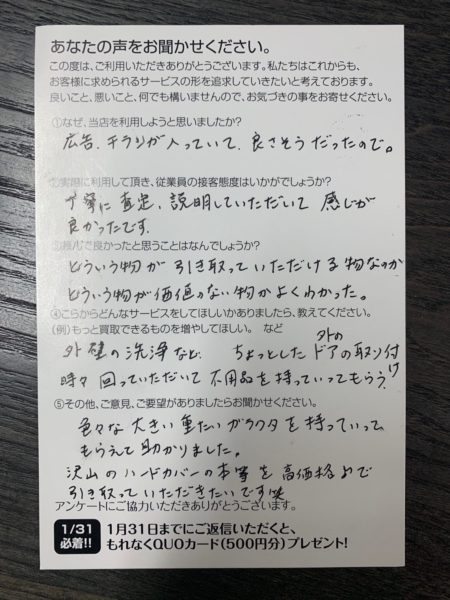 あなたの声をお聞かせください。
この度は、ご利用いただきありがとうございます。私たちはこれからも、
お客様に求められるサービスの形を追求していきたいと考えております。
良いこと、悪いこと、何でも構いませんので、お気づきの事をお寄せください。
①なぜ、当店を利用しようと思いましたか?
広告、チラシが入っていて、良さそうだったので。
②実際に利用して頂き、従業員の接客態度はいかがでしょうか?
丁寧に査定、説明していただいて 感じが
良かったです。
で良かったと思うことはなんでしょうか?
どういう物が 引き取っていただける物なのか
どういう物が価値のない物かよくわかった。
④こちらからどんなサービスをしてほしいかありましたら、教えてください。
(例)もっと買取できるものを増やしてほしい。 など
外壁の洗浄など ちょっとした 外のドアの取り付け
時々 回っていただいて 不用品を持っていってもらう
⑤その他、ご意見、ご要望がありましたらお聞かせください。
色々な大きい重たいガラクタを持っていって
もらえて助かりました。
沢山のハードカバーの本等を高価格で
引き取っていただきたいです笑
アンケートにご協力いただきありがとうございます。
1/31
必着!!
1月31日までにご返信いただくと、
もれなくQUOカード(500円分)プレゼント!